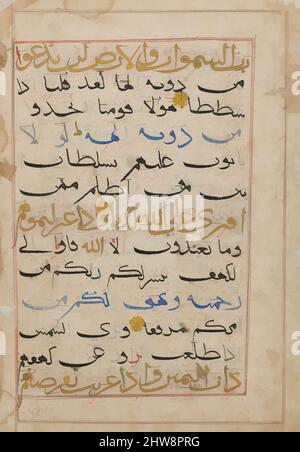 رب السموات والارض لن ندعوا
من دونه الها لقد قلنا اذا
شططا هولا قومنا اتخذوا
من دونه الهة لولا
ياتون عليهم بسلطان
بين فمن اظلم ممن
افترى على الله كذبا واذ اعتزلتموهم
وما يعبدون الا الله فاوا الى
الكهف ينشر لكم ربكم من
رحمته ويهيئ لكم من
امركم مرفقا وترى الشمس
اذا طلعت تزور عن كهفهم
ذات اليمين واذا غربت تقرضهم
alamy
Image ID: 2W8PRG
www.alamy.com